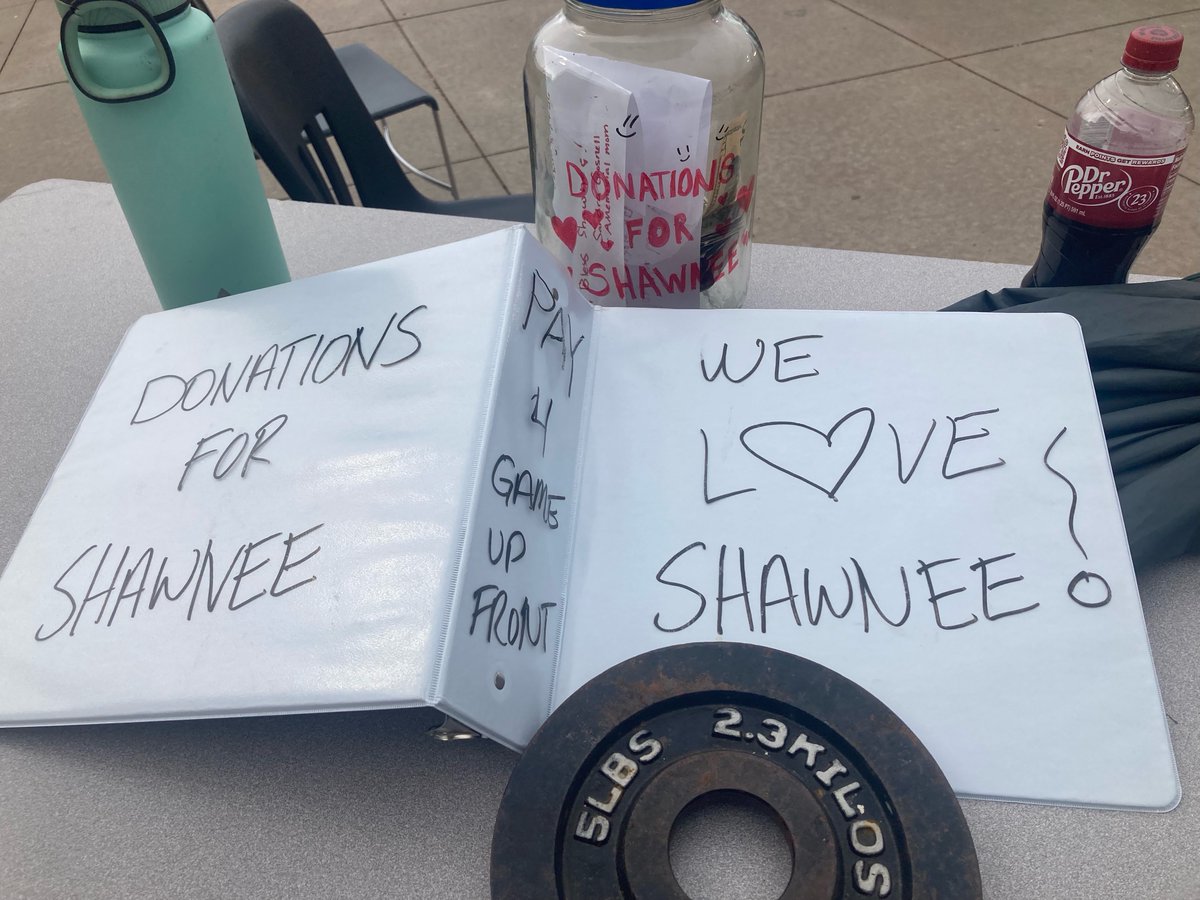 DONATIONS
FOR
SHAWNEE
EARN POINTS GET REWARDS
Dr
Pepper
23
DONATIONS
FOR
SHAWNEE
PAY
4
GAME
UP
FRONT
WE
LOVE
SHAWNEE!
5LBS
2.3KILOS